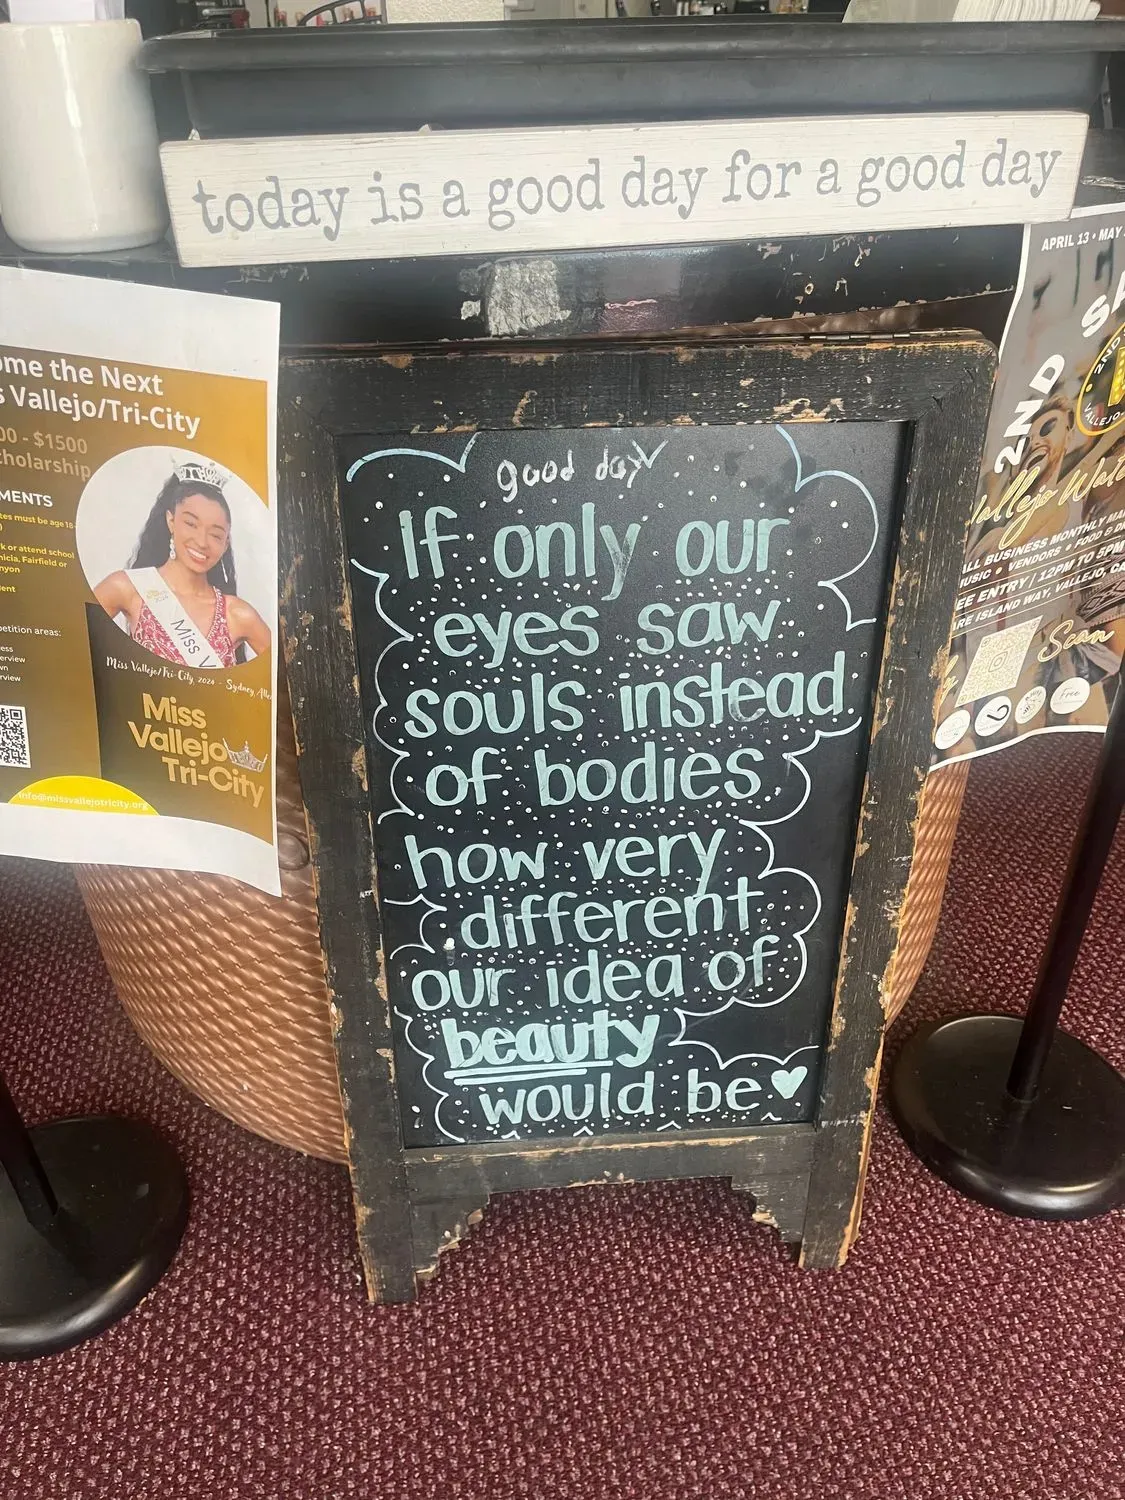 today is a good day for a good day
good day
If only our
eyes saw
souls instead
of bodies
how very
different
our idea of
beauty
would be
ome the Next
s Vallejo/Tri-City
00 - $1500
cholarship
MENTS
tes must be age 18
k or attend school
nicia, Fairfield or
nyon
ent
petition areas:
ess
erview
wn
rview
Miss V
Miss Vallejo/Tri-City, 2024 - Sydney
Miss
Vallejo
Tri-City
info@missvallejotricity.org
APRIL 13 • MAY
2ND SA
2ND
VALLEJO
Vallejo Wate
ALL BUSINESS MONTHLY MA
USIC • VENDORS • FOOD & D
EE ENTRY | 12PM TO 5PM
ARE ISLAND WAY, VALLEJO, CA
Scan
Free